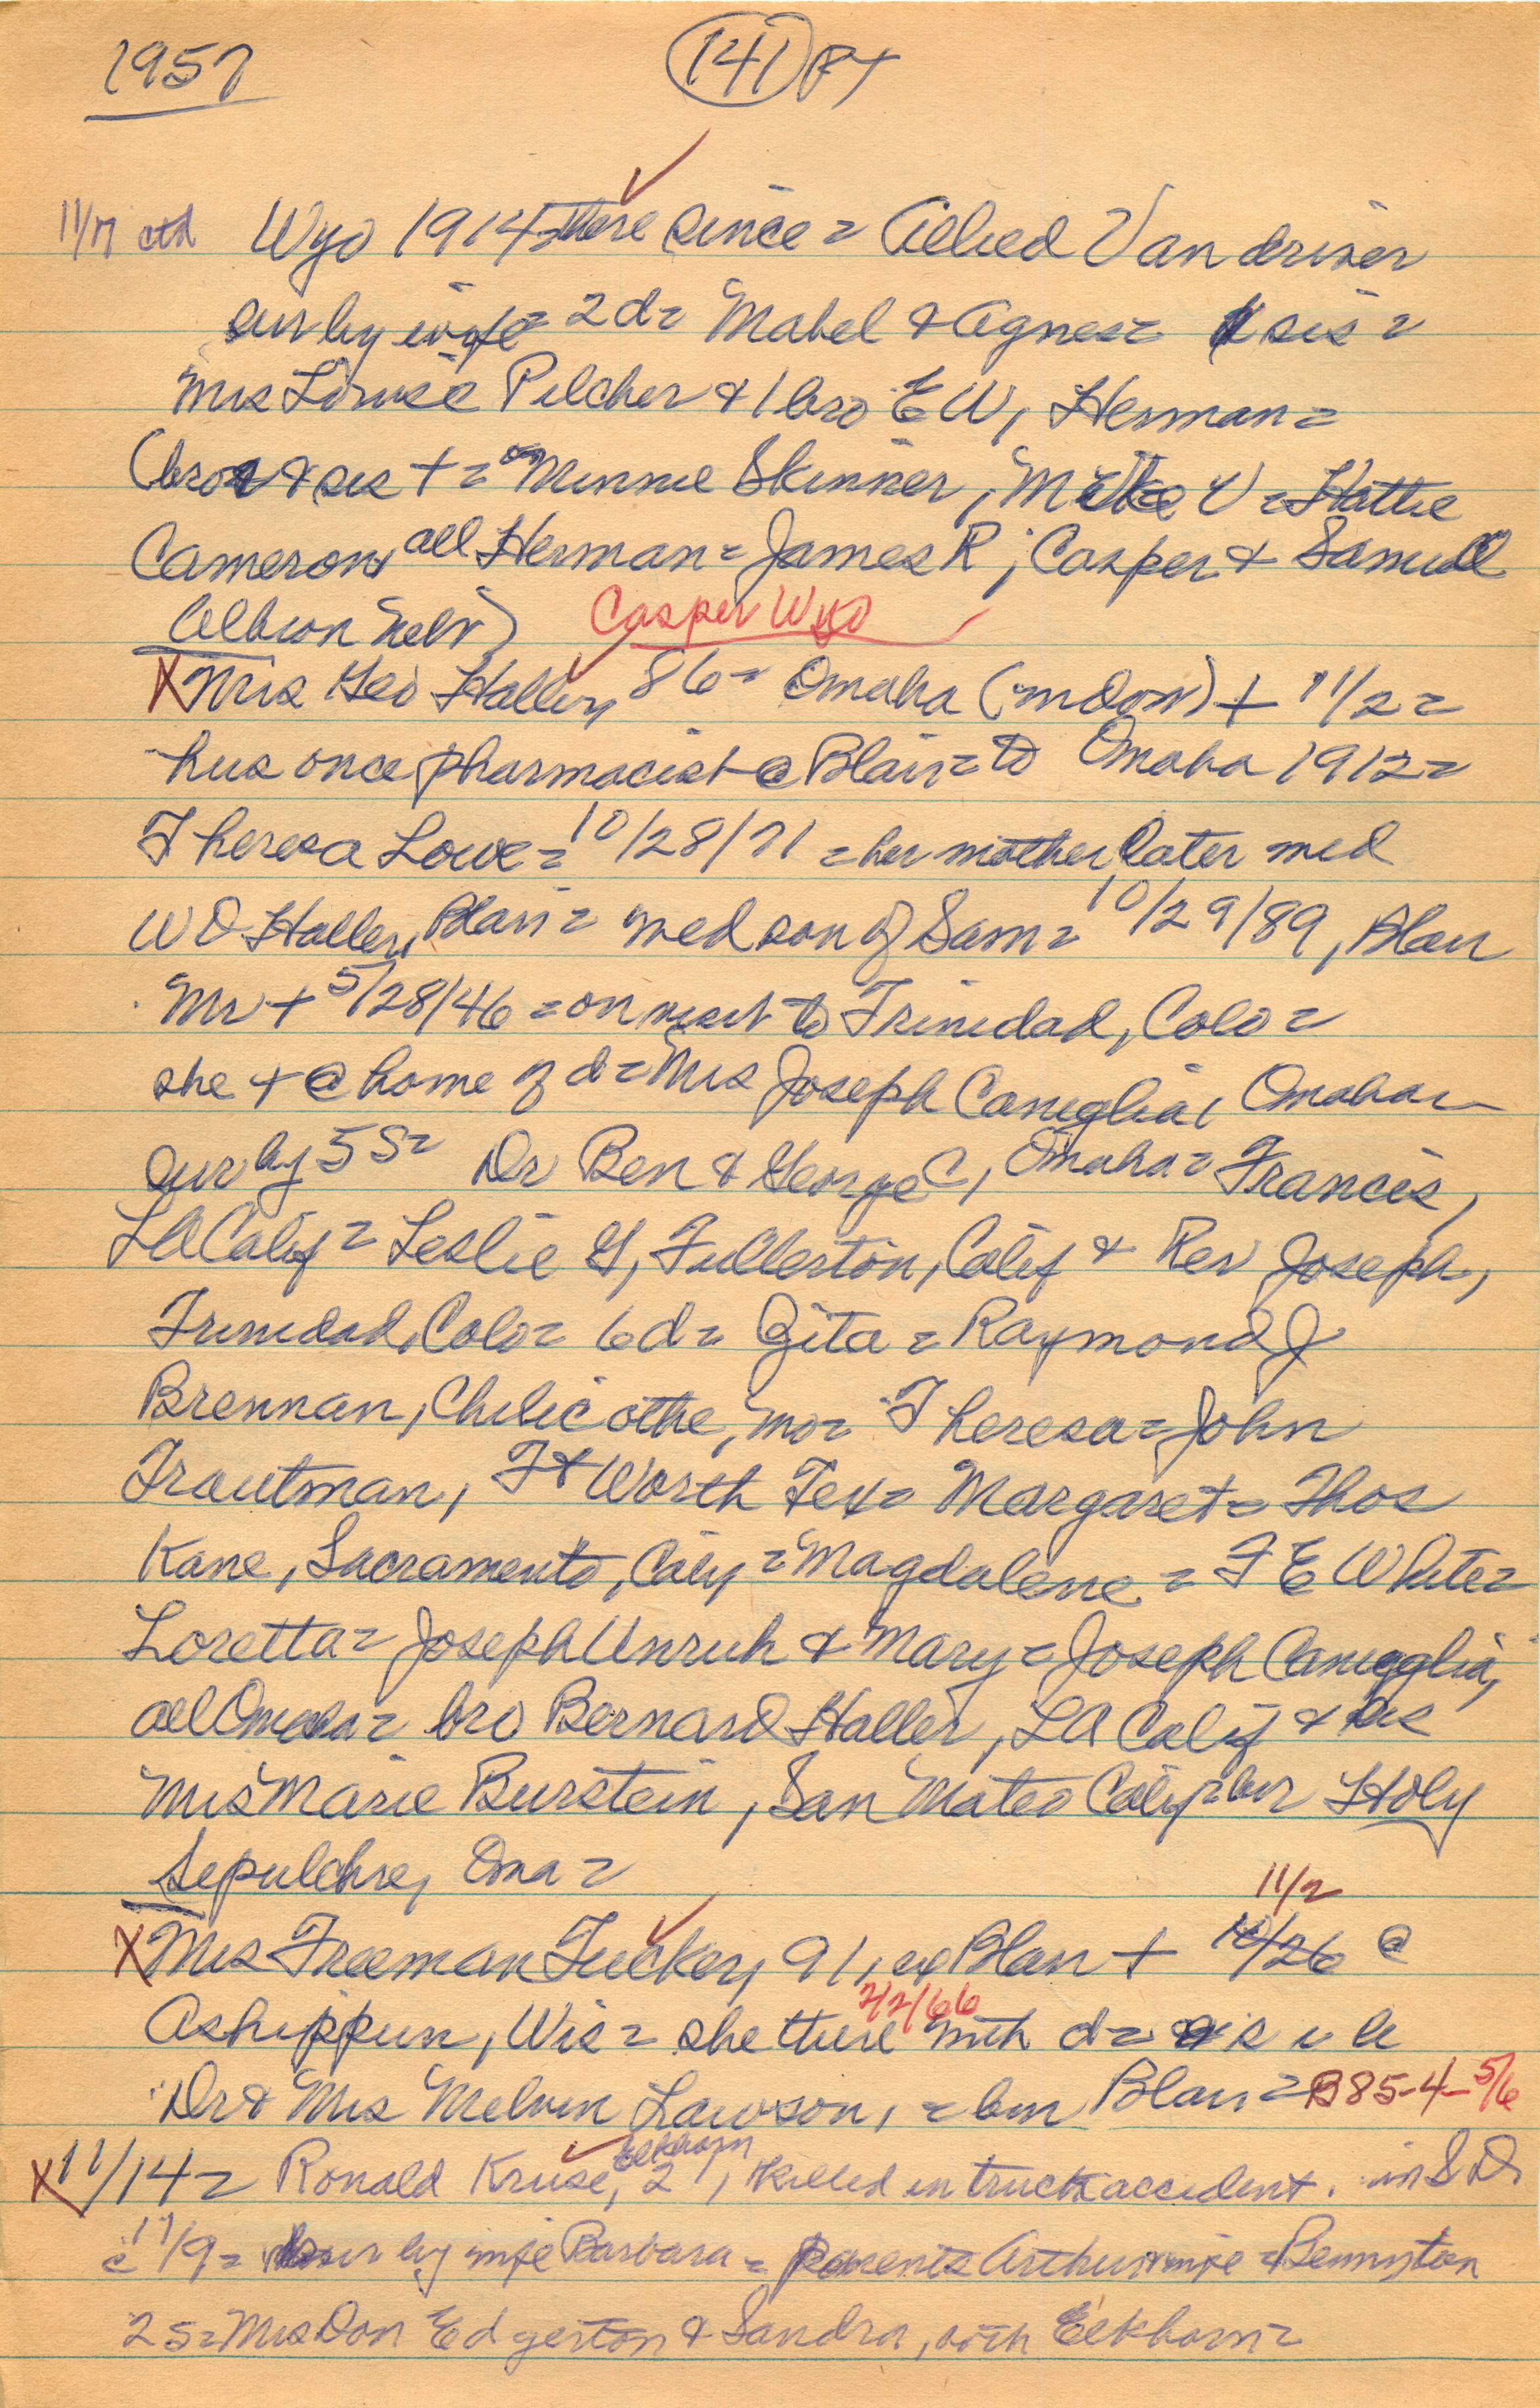 1957 (141) PX
11/7 ctd Wyo 1914 = there since = Allied Van driver
sur by wife = 2 d = Mabel & Agnes = 1 sis =
Mrs Louise Pilcher & 1 bro E W, Herman =
(bro & sis + = Minnie Skinner, Mike V = Hattie
Cameron all Herman = James R; Casper & Samuel
Albion Nebr) Casper Wyo
X Mrs Geo Haller, 86 = Omaha (m Don) + 11/2 =
hus once pharmacist @ Blair = to Omaha 1912 =
Theresa Lowe = 10/28/71 = her mother later med
W O Haller, Blair = med son of Sam = 10/29/89, Blair
Mr + 5/28/46 = on visit to Trinidad, Colo =
she + @ home of d = Mrs Joseph Caniglia, Omaha =
sur by 5 S = Dr Ben & George C, Omaha = Francis,
LA Calif = Leslie G, Fullerton, Calif & Rev Joseph,
Trinidad, Colo = 6 d = Zita = Raymond J
Brennan, Chilicothe, Mo = Theresa = John
Trautman, Ft Worth Tex = Margaret = Thos
Kane, Sacramento, Calif = Magdalene = F E White =
Loretta = Joseph Unruh & Mary = Joseph Caniglia,
all Omaha = bro Bernard Haller, LA Calif & sis
Mrs Marie Burstein, San Mateo Calif = bur Holy
Sepulchre, Oma =
11/2
X Mrs Freeman Tucker, 91, ex Blair + 10/26 @
Ashippun, Wis = she there with d =
2/2/66
Dr & Mrs Melvin Lawson, = bur Blair = B85-4-5/6
X 11/14 = Ronald Kruse, 2 , Elkhorn killed in truck accident. in S D
11/9 = sur by wife Barbara = parents Arthur & wife = Bennington
2 S = Mrs Don Edgerton & Sandra, both Elkhorn =